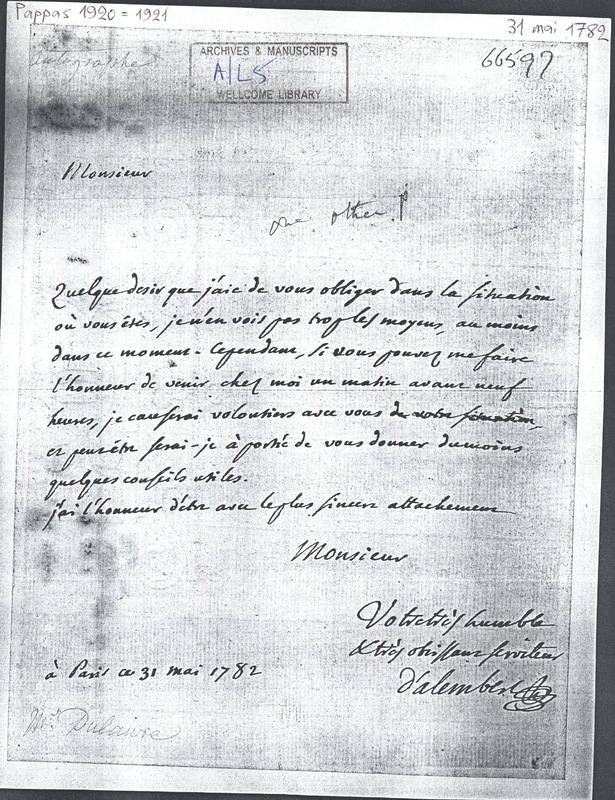 Pappas 1920 = 1921
31 mai 1782
autographe
ARCHIVES & MANUSCRIPTS
A/L5
WELLCOME LIBRARY
66597
Monsieur
one other
Quelque desir que j'aie de vous obliger dans la situation
où vous êtes, je n'en vois pas trop les moyens, au moins
dans ce moment. Cependant, si vous pouvez me faire
l'honneur de venir chez moi un matin avant neuf
heures, je causerai volontiers avec vous de votre situation,
et peutêtre serai-je à portée de vous donner dumoins
quelques conseils utiles.
j'ai l'honneur d'être avec le plus sincere attachement
Monsieur
Votre très humble
& très obéissant serviteur
D'alembert
à Paris ce 31 mai 1782
Mr. Dulaure